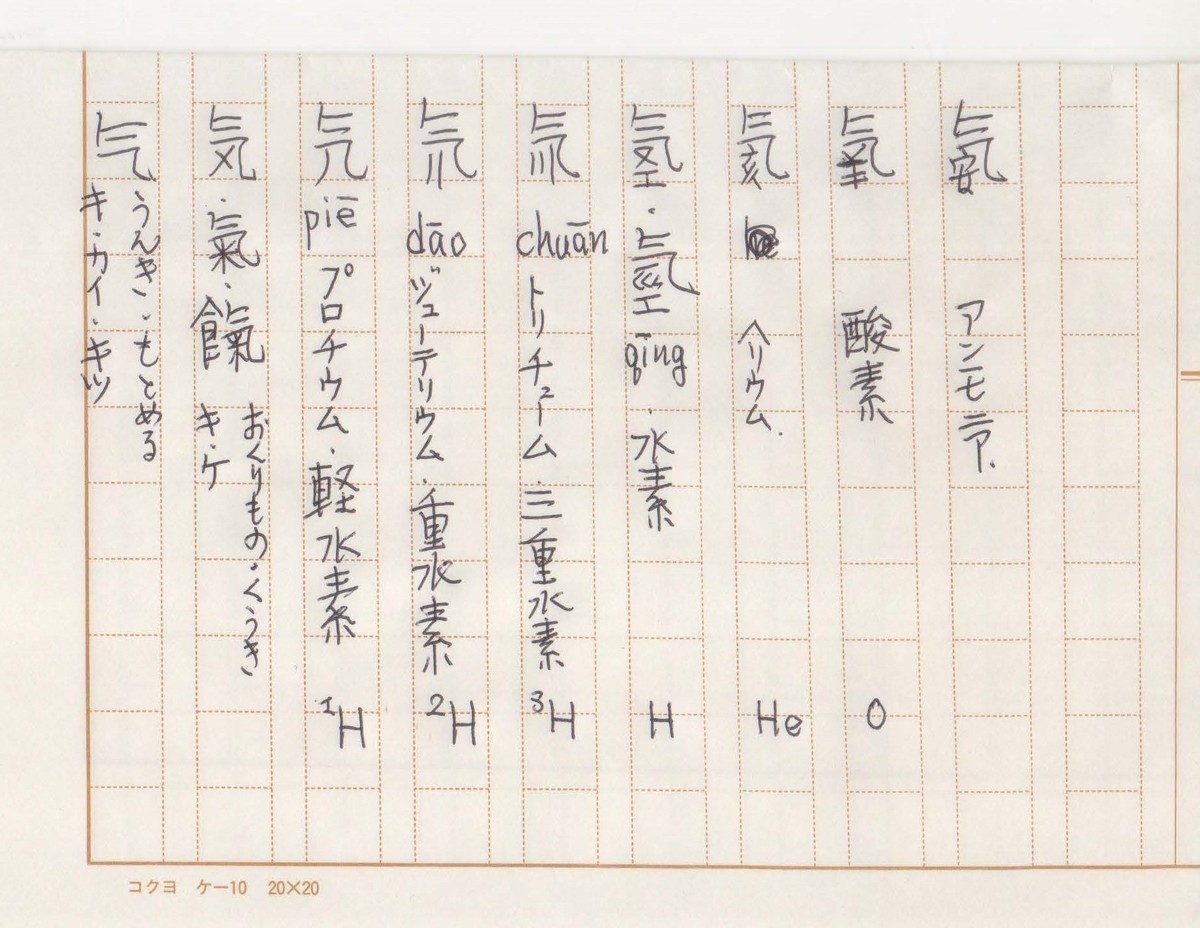 气 うんき・もとめる
キ・カイ・キツ
気・氣・餼 おくりもの・くうき
キ・ケ
氕 piē プロチウム・軽水素 ¹H
氘 dāo ヅューテリウム・重水素 ²H
氚 chuān トリチューム・三重水素 ³H
氢・氫 qīng・水素 H
氦 ヘリウム. He
氧 酸素 O
氨 アンモニア.
コクヨ ケー10 20×20